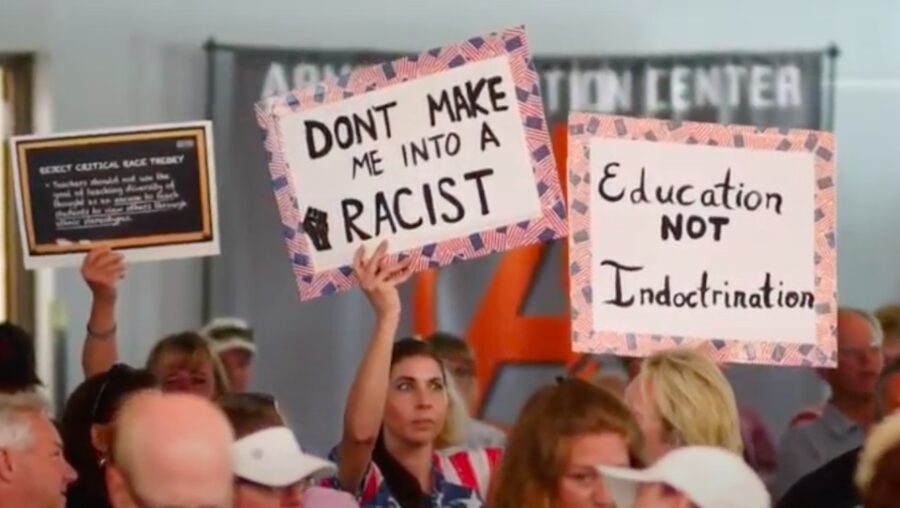 REJECT CRITICAL RACE THEORY
• Teachers should not use the
goal of teaching diversity of
thought as an excuse to teach
students to view others through
ethnic stereotypes.
DONT MAKE
ME INTO A
RACIST
Education
NOT
Indoctrination
CENTER